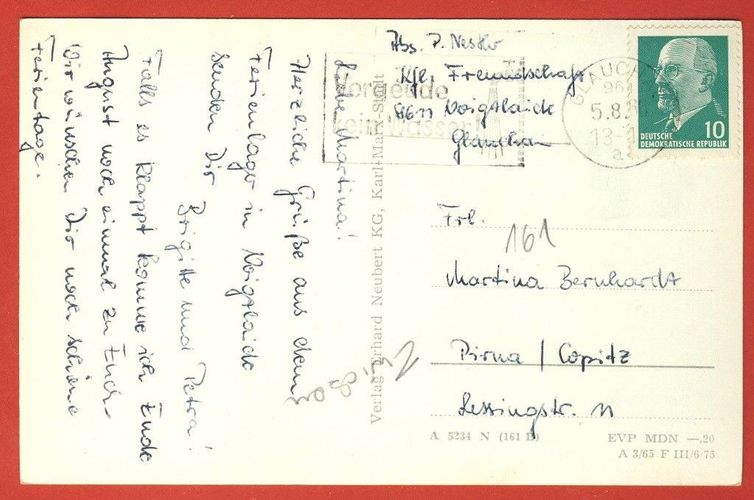 Liebe Martina!
Herzliche Grüße aus dem
Ferienlager in Voigtlaide
senden Dir
Brigitte und Petra!
Falls es klappt komme ich Ende
August noch einmal zu Euch.
Wir wünschen Dir noch schöne
Ferientage.
Abs. P.
Kfl. Freundschaft
Voigtlaide
Glauchau
Vergeude
kein Wasser
GLAUCHAU
961
5.8.
13
a
DEUTSCHE
DEMOKRATISCHE REPUBLIK
10
Frl.
161
Martina Bernhardt
Pirna / Copitz
Lessingstr. 11
Verlag Erhard Neubert KG, Karl-Marx-Stadt
Zwickau
A 5234 N (161 B)
EVP MDN —,20
A 3/65 F III/6/75